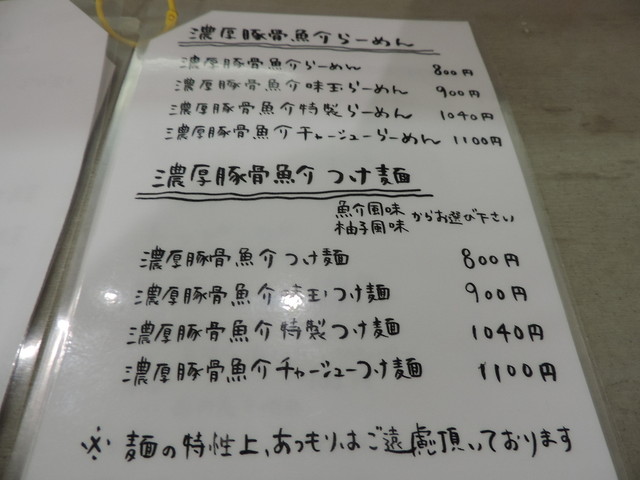 濃厚豚骨魚介らーめん
濃厚豚骨魚介らーめん 800円
濃厚豚骨魚介味玉らーめん 900円
濃厚豚骨魚介特製らーめん 1040円
濃厚豚骨魚介チャーシューらーめん 1100円
濃厚豚骨魚介つけ麺
魚介風味
柚子風味 からお選び下さい
濃厚豚骨魚介つけ麺 800円
濃厚豚骨魚介味玉つけ麺 900円
濃厚豚骨魚介特製つけ麺 1040円
濃厚豚骨魚介チャーシューつけ麺 1100円
※ 麺の特性上、あつもりはご遠慮頂いております